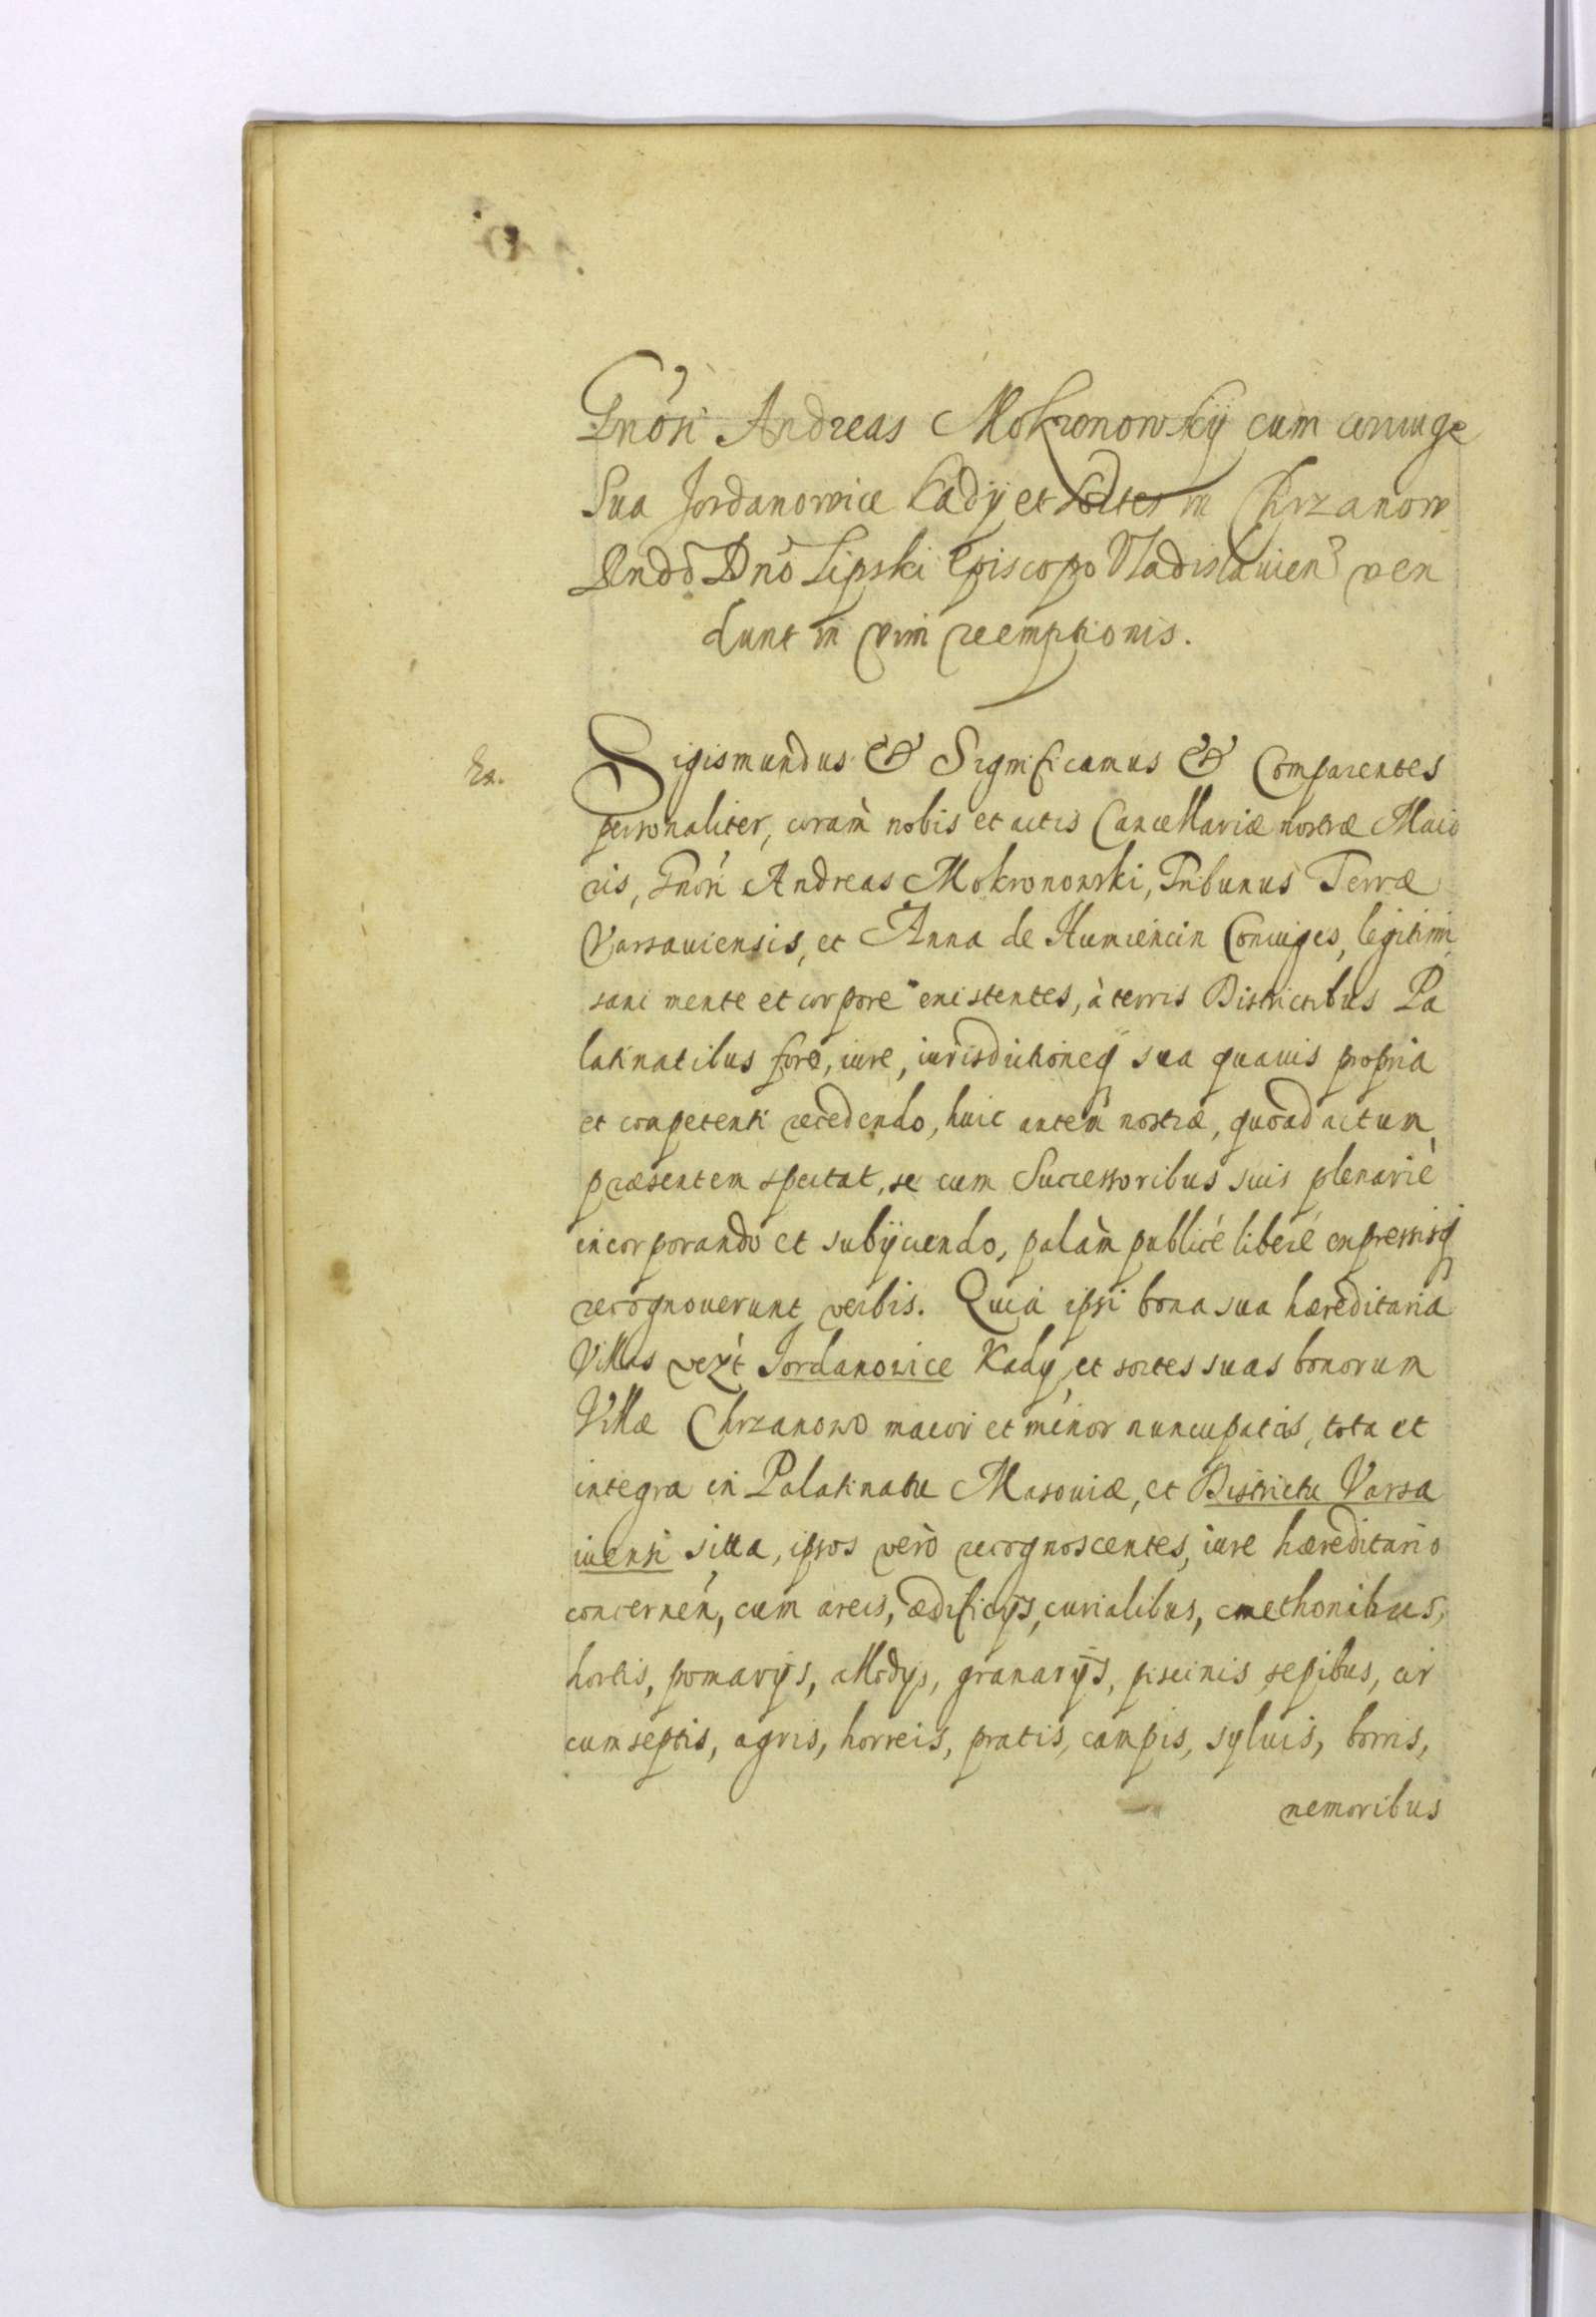 Gnosi Andreas Mokronowskÿ cum coniuge
Sua Jordanowice Kady et sortes in Chrzanow
Rndo Dno Lipski Episcopo Vladislauien ven
dunt in vim reemptionis.
Ex.
Sigismundus &c Significamus &c Comparentes
personaliter, coram nobis et actis Cancellariæ nostræ Maio
ris, Gnosi Andreas Mokronowski, Tribunus Terræ
Varsauiensis, et Anna de Humiencin Coniuges, legitimi
sani mente et corpore existentes, à terris Districtibus Pa
latinatibus foro, iure, iurisdictioneq sua quauis propria
et competenti recedendo, huic autem nostræ, quoad actum
præsentem spectat, se cum Successoribus suis plenariè
incorporando et subÿciendo, palàm publicè liberè expressisq
recognouerunt verbis. Quia ipsi bona sua hæreditaria
Villas vezt Jordanowice Kady, et sortes suas bonorum
Villæ Chrzanowo maior et minor nuncupatis, tota et
integra in Palatinatu Masouiæ, et Districtu Varsa
uiensi sitta, ipsos verò recognoscentes, iure hæreditario
concernen, cum areis, ædificÿs, curialibus, cmethonibus,
hortis, pomarÿs, allodÿs, granarÿs, piscinis, sepibus, cir
cumseptis, agris, horreis, pratis, campis, syluis, borris,
nemoribus